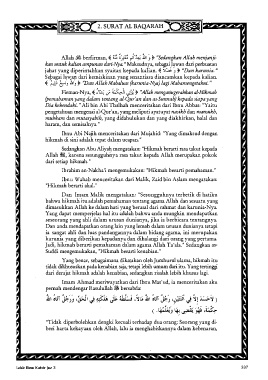 2. SURAT AL BAQARAH
Allah berfirman, ﴿ وَاللَّهُ يَعِدُكُم مَّغْفِرَةً مِّنْهُ ﴾ "Sedangkan Allah menjanji-
kan untuk kalian ampunan dari-Nya." Maksudnya, sebagai lawan dari perbuatan
jahat yang diperintahkan syaitan kepada kalian. ﴿ وَفَضْلًا ﴾ "Dan karunia."
Sebagai lawan dari kemiskinan yang senantiasa disarankan kepada kalian.
"Dan Allah Mahaluas (karunia-Nya) lagi Mahamengetahui."
Firman-Nya, "Allah menganugerahkan al-Hikmah
(pemahaman yang dalam tentang al-Qur'an dan as-Sunnah) kepada siapa yang
Dia kehendaki." Ali bin Abi Thalhah menceritakan dari Ibnu Abbas: "Yaitu
pengetahuan mengenai al-Qur'an, yang meliputi ayat-ayat nasikh dan mansukh,
muhkam dan mutasyabih, yang didahulukan dan yang diakhirkan, halal dan
haram, dan semisalnya."
Ibnu Abi Najih menceritakan dari Mujahid: "Yang dimaksud dengan
hikmah di sini adalah tepat dalam ucapan."
Sedangkan Abu Aliyah mengatakan: "Hikmah berarti rasa takut kepada
Allah, karena sesungguhnya rasa takut kepada Allah merupakan pokok
dari setiap hikmah."
Ibrahim an-Nakha'i mengemukakan: "Hikmah berarti pemahaman."
Ibnu Wahab menceritakan dari Malik, Zaid bin Aslam mengatakan:
"Hikmah berarti akal."
Dan Imam Malik mengatakan: "Sesungguhnya terbetik di hatiku
bahwa hikmah itu adalah pemahaman tentang agama Allah dan sesuatu yang
dimasukkan Allah ke dalam hati yang berasal dari rahmat dan karunia-Nya.
Yang dapat memperjelas hal itu adalah bahwa anda mungkin mendapatkan
seseorang yang ahli dalam urusan dunianya, jika ia berbicara tentangnya.
Dan anda mendapatkan orang lain yang lemah dalam urusan dunianya tetapi
ia sangat ahli dan luas pandangannya dalam bidang agama, ini merupakan
karunia yang diberikan kepadanya dan dihalangi dari orang yang pertama.
Jadi, hikmah berarti pemahaman dalam agama Allah Ta'ala." Sedangkan as-
Suddi mengemukakan, "Hikmah berarti kenabian."
Yang benar, sebagaimana dikatakan oleh Jumhurul ulama, hikmah itu
tidak dikhususkan pada kenabian saja, tetapi lebih umum dari itu. Yang tertinggi
dari derajat hikmah adalah kenabian, sedangkan risalah lebih khusus lagi.
Imam Ahmad meriwayatkan dari Ibnu Mas'ud, ia menceritakan aku
pernah mendengar Rasulullah bersabda:
( لاَحَسَدَ إِلاَّ فِي اثْنَتَيْنِ: رَجُلٌ آتَاهُ اللهُ مَالاً، فَسَلَّطَهُ عَلَى هَلَكَتِهِ فِي الْحَقِّ، وَرَجُلٌ آتَاهُ اللهُ
حِكْمَةً، فَهُوَ يَقْضِي بِهَا وَيُعَلِّمُهَا. )
"Tidak diperbolehkan dengki kecuali terhadap dua orang: Seorang yang di-
beri harta kekayaan oleh Allah, lalu ia menghabiskannya dalam kebenaran,
Tafsir Ibnu Katsir Juz 3
537